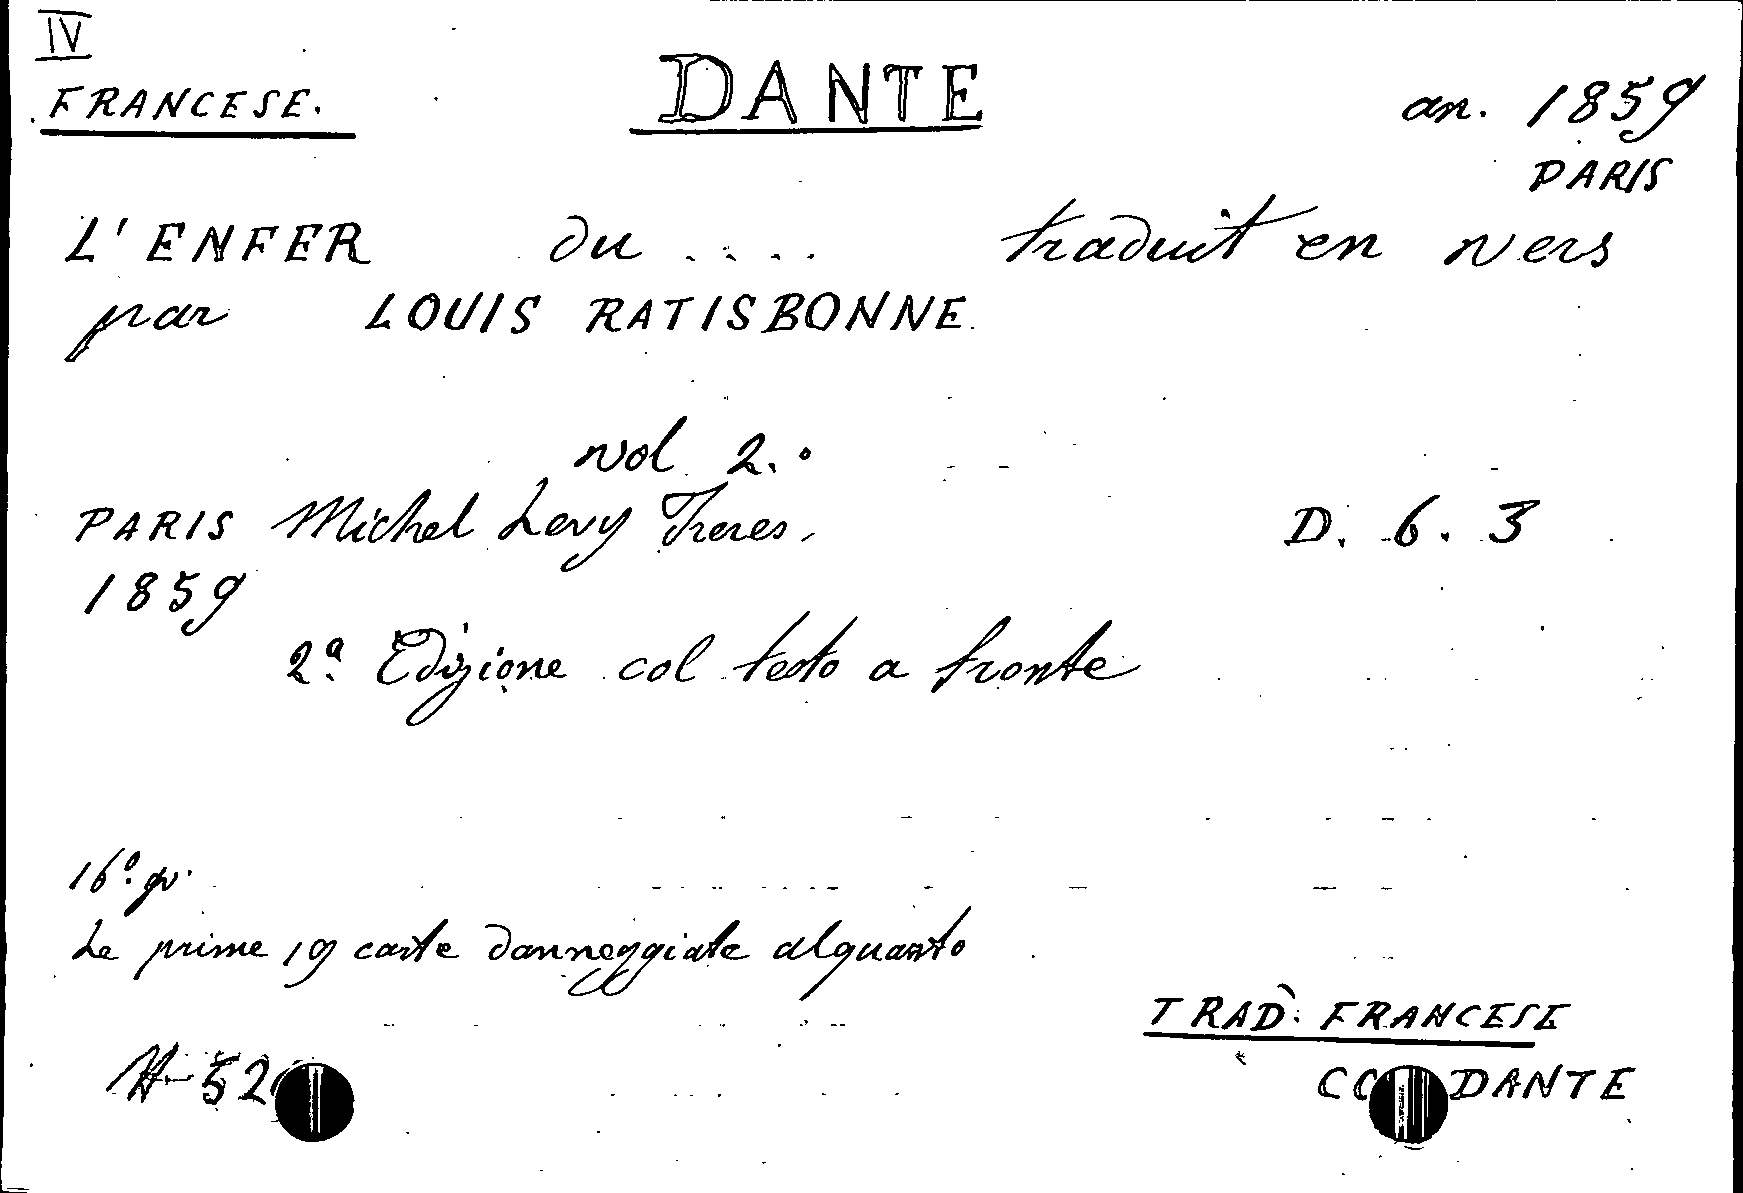 IV
FRANCESE. DANTE an. 1859
PARIS
L' ENFER du .... traduit en vers
par LOUIS RATISBONNE.
vol 2.°
PARIS Michel Levy Freres, D. 6. 3
1859
2ª Edizione col testo a fronte
16º. gr.
Le prime 19 carte danneggiate alquanto
TRAD. FRANCESE
52 DANTE